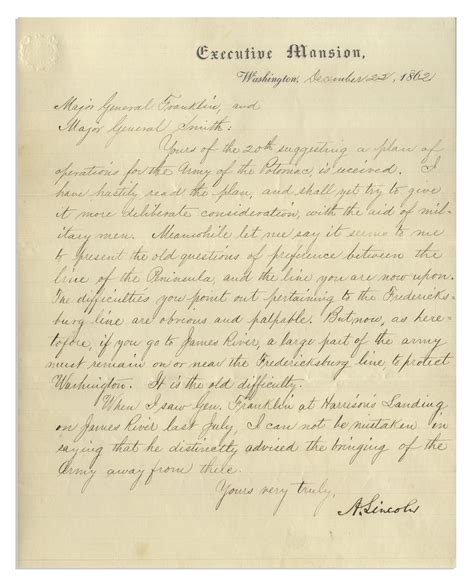 Executive Mansion,
Washington, December 22, 1862
Major General Franklin, and
Major General Smith:
Yours of the 20th suggesting a plan of
operations for the Army of the Potomac, is received. I
have hastily read the plan, and shall yet try to give
it more deliberate consideration, with the aid of mil-
itary men. Meanwhile let me say it seems to me
to present the old questions of preference between the
line of the Peninsula, and the line you are now upon.
The difficulties you point out pertaining to the Fredericks-
burg line are obvious and palpable. But now, as here-
tofore, if you go to James River, a large part of the army
must remain on or near the Fredericksburg line, to protect
Washington. It is the old difficulty.
When I saw Gen. Franklin at Harrison's Landing
on James River last July, I can not be mistaken in
saying that he distinctly advised the bringing of the
Army away from there.
Yours very truly,
A. Lincoln